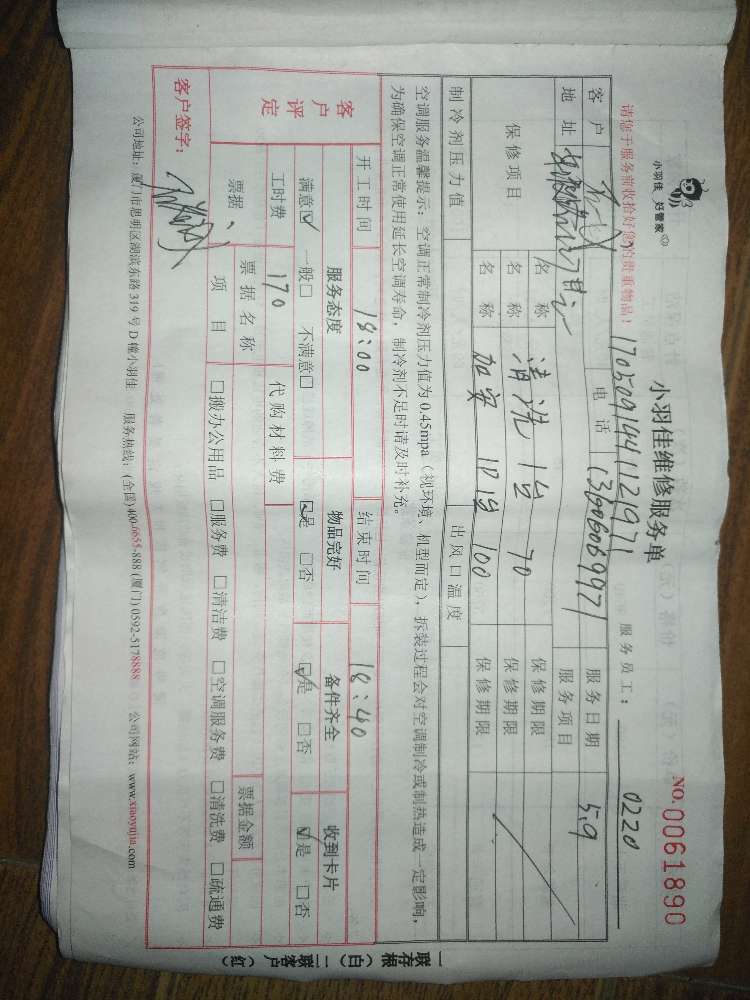 小羽佳 好管家
小羽佳维修服务单
NO. 0061890
请您于服务前收拾好您的贵重物品！
1705091441121971
服务员工：0220
客户
电话 13606069971
服务日期 5.9
地址
服务项目
保修项目
名称 清洗 1台 70
保修期限
名称
保修期限
名称 加安 1P1台 100
保修期限
制冷剂压力值
出风口温度
空调服务温馨提示：空调正常制冷剂压力值为0.45mpa（视环境、机型而定），拆装过程会对空调制冷或制热造成一定影响，
为确保空调正常使用延长空调寿命，制冷剂不足时请及时补充。
客户评定
开工时间 18:00 结束时间 18:40
服务态度 物品完好 备件齐全 收到卡片
满意☑ 一般□ 不满意□ ☑是 □否 ☑是 □否 ☑是 □否
工时费 170 代购材料费
票据 票据名称 票据金额
项目 □搬办公用品 □服务费 □清洁费 □空调服务费 □清洗费 □疏通费
客户签字：
公司地址：厦门市思明区湖滨东路319号D幢小羽佳 服务热线：(全国)400-6655-888 (厦门) 0592-5178888 公司网站：www.xiaoyujia.com
一联存根（白）二联客户（红）